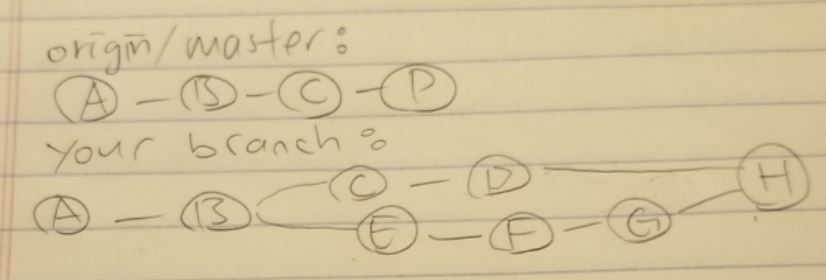 origin/master:
A - B - C - D
your branch:
C - D H
A - B E - F - G